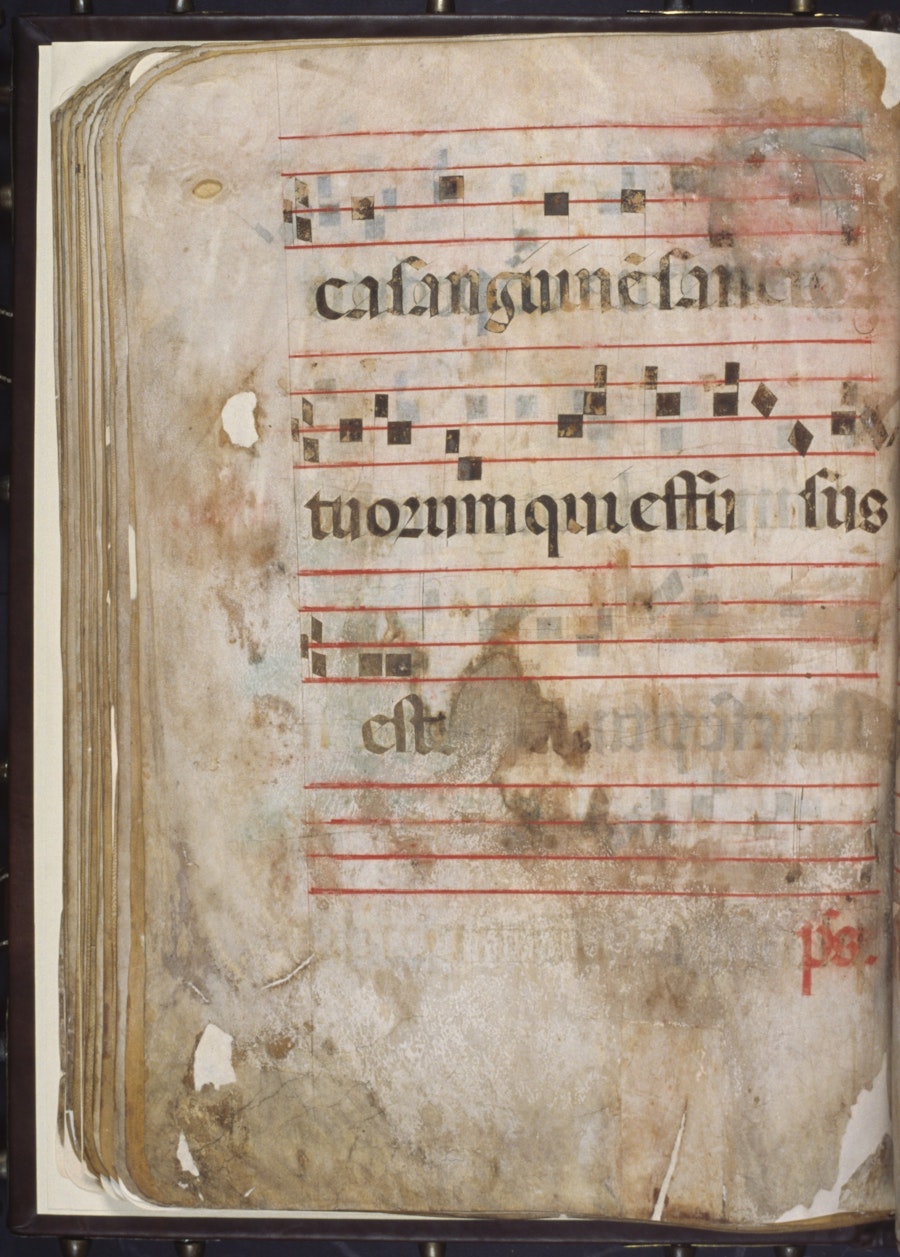 ca sanguinē sancto
tuorum qui effu sus
est
ps.